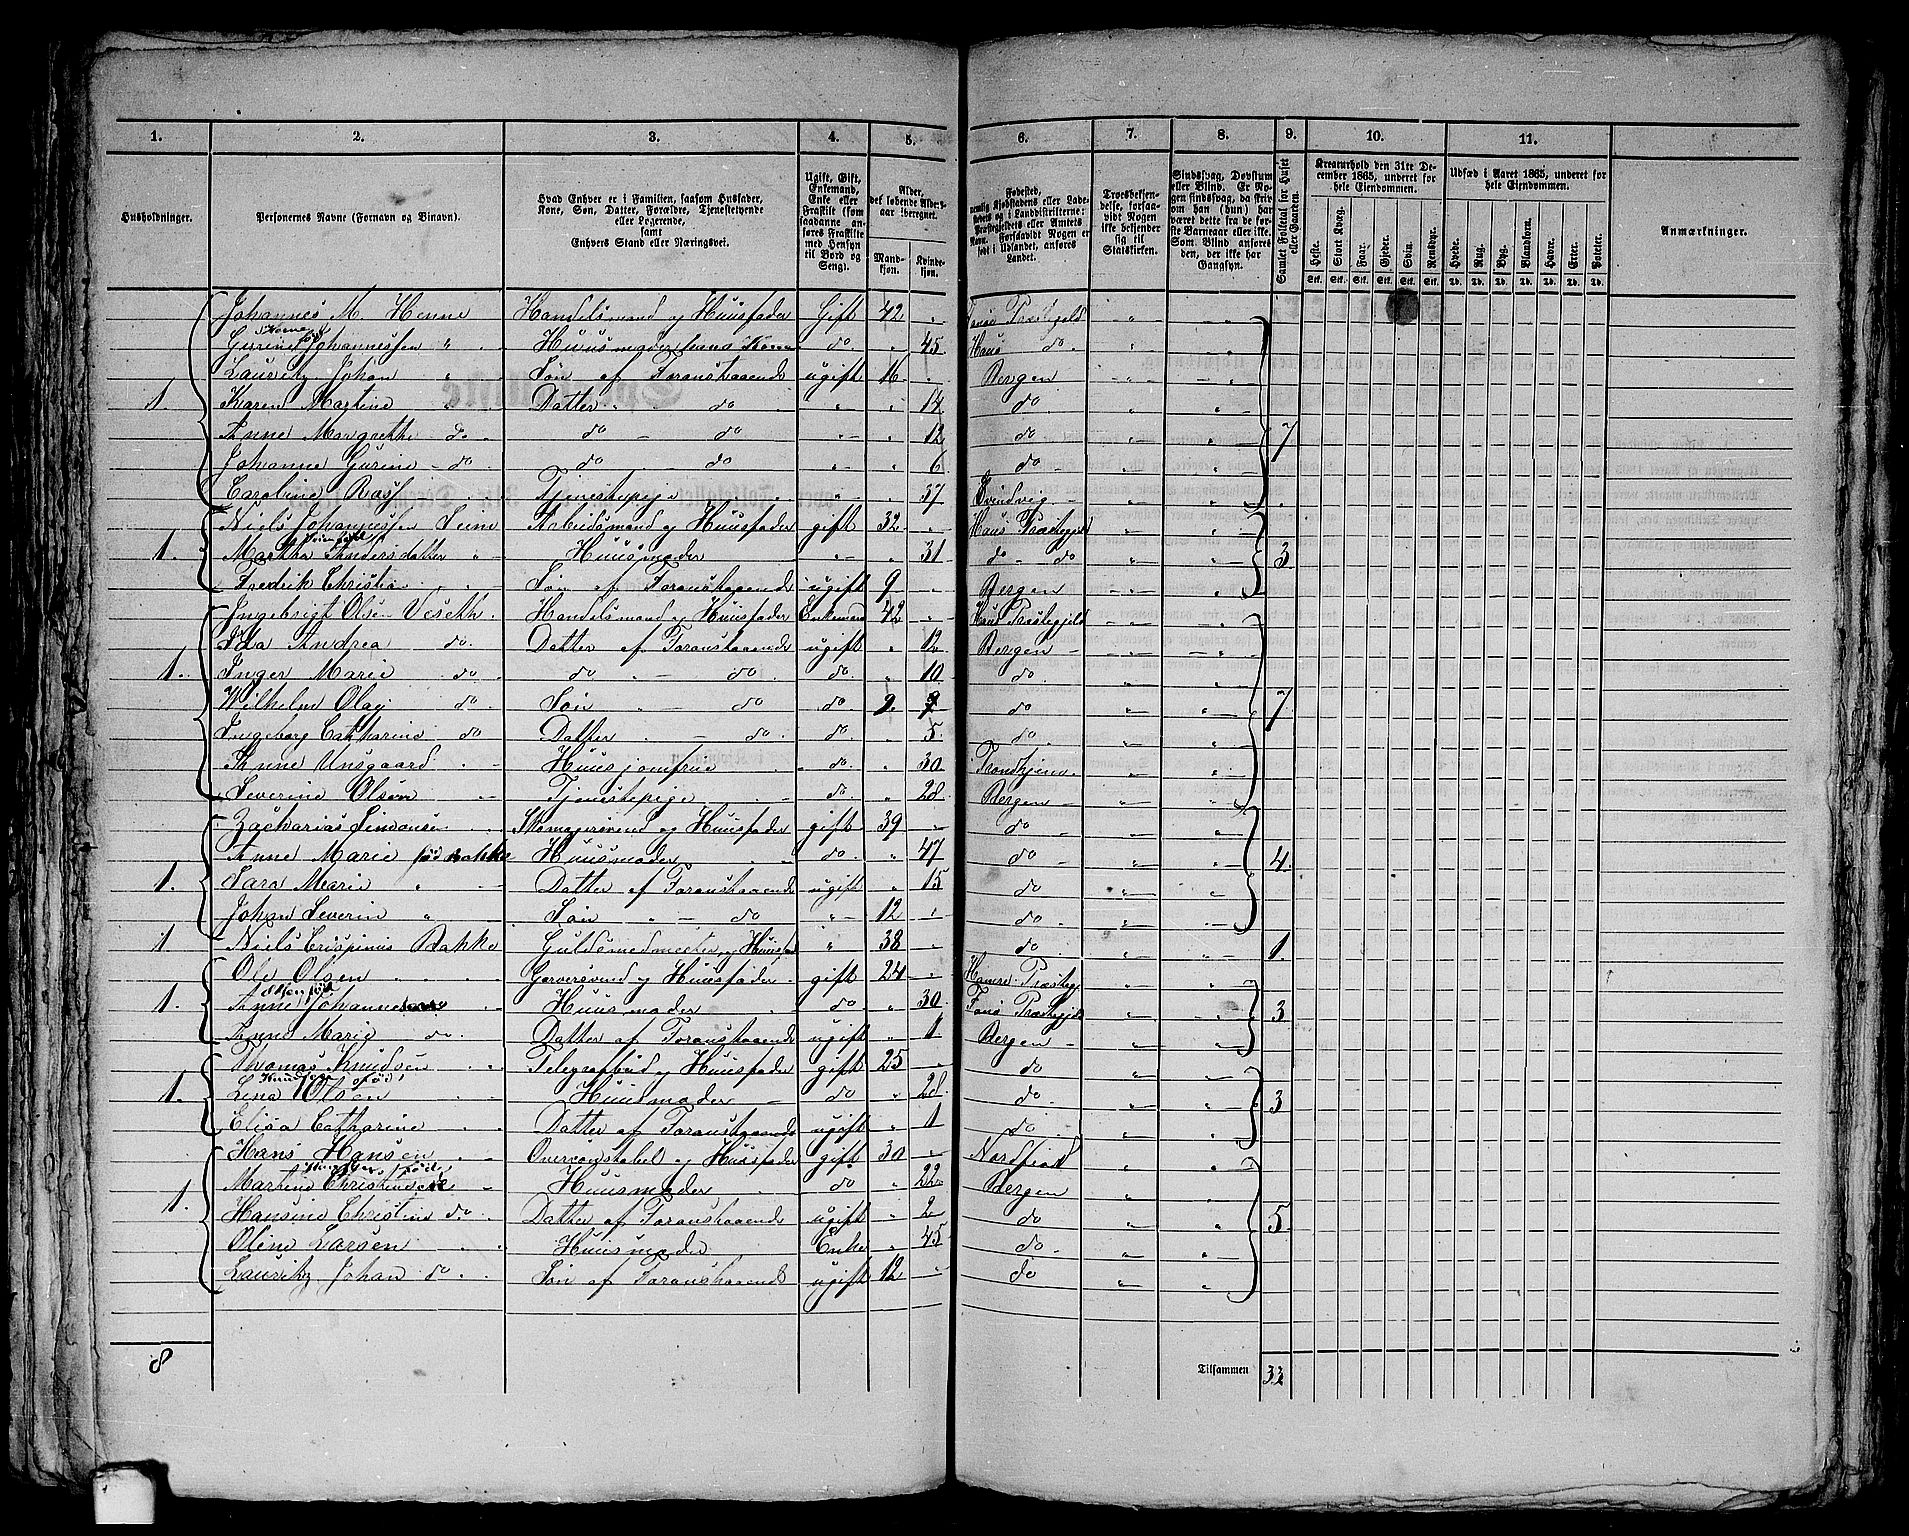 1. 2. 3. 4. 5. 6. 7. 8. 9. 10. 11.
Husholdninger. Personernes Navne (Fornavn og Binavn). Hvad Enhver er i Familien, saasom Husfader, Kone, Søn, Datter, Forældre, Tjenestetyende eller Logerende, samt Enhvers Stand eller Næringsvei. Ugift, Gift, Enkemand, Enke eller Fraskilt (som saadanne anføres Fraskilte med Hensyn til Bord og Seng). Alder, det løbende Aldersaar iberegnet. Mandkjøn. Kvindekjøn.
Fødested, nemlig Kjøbstadens eller Ladestedets og i Landdistrikterne: Præstegjeldets eller Amtets Navn. Forsaavidt Nogen er født i Udlandet, anføres Landet. Troesbekjendelse, forsaavidt Nogen ikke bekjender sig til Statskirken. Sindssvag, Døvstum eller Blind. Er Nogen sindssvag, da skriv om han (hun) har været dette fra de første Barneaar eller ikke. Som Blind anføres den, der ikke har Gangsyn. Samlet Folketal for Huset eller Gaarden. Kreaturhold den 31te December 1865, underet for hele Eiendommen. Udsæd i Aaret 1865, underet for hele Eiendommen. Anmærkninger.
Heste. Stort Kvæg. Faar. Gjeder. Sviin. Rensdyr. Hvede. Rug. Byg. Blandkorn. Havre. Erter. Poteter.
Stk. Stk. Stk. Stk. Stk. Stk. Td. Td. Td. Td. Td. Td. Td.
Johannes M. Henne Handelsmand og Huusfader Gift 42 Præstegjeld
Johannessen Huusmoder hans Kone do. 45 Haus do.
Lauritz Johan " Søn af Foranstaaende ugift 16 Bergen
1. Karen Martine " Datter do 14 do
Anne Margrethe do do do 12 do 7
Johanne Gurine do do do 6 do
Caroline Rasf Tjenestepige 37 Evindvig
Niels Johannessen Seim Arbeidsmand og Huusfader gift 32 Haus Præstegjeld
1. Martha Seim født Andersdatter Huusmoder 31 do do 3
Fredrik Christian Søn af Foranstaaende ugift 9 Bergen
Ingebrigt Olsen Veseth Handelsmand og Huusfader Enkemand 42 Haus Præstegjeld
Ida Andrea do. Datter af Foranstaaende ugift 12 Bergen
1. Inger Marie do do do do. 10 do.
Wilhelm Olaj do Søn do do 9 do 7
Ingeborg Catharine do Datter do do. 5 do.
Anne Unsgaard Huusjomfrue do. 30 Trondhjem
Severine Olsen Tjenestepige do 28 Bergen
Zacharias Simonsen Skomagersvend og Huusfader gift 39 do
Anne Marie fød Bakke Huusmoder do. 47 do 4.
1. Sara Marie " Datter af Foranstaaende ugift 15 do
Johan Severin " Søn do " 12 do.
1 Niels Crispinus Bakke Guldsmedmester og Huusfad " 38 do. 1
Ole Olsen Garversvend og Huusfader gift 24 Hamre Præsteg.
1. Anne Olsen fød Johannesen Huusmoder do 30 Præstegjeld 3
Anne Marie do. Datter af Foranstaaende ugift 1 Bergen
Thomas Knudsen Telegrafbud og Huusfader gift 25 do
1. Lena Knudsen fød Olsen Huusmoder do 28 do. 3
Elisa Catharine Datter af Foranstaaende ugift 1 do.
Hans Hansen Overconstabel og Huusfader gift 30 Nordfiord
Martine Hansen fød Christensen Huusmoder do 22 Bergen
1. Hansine Christine do Datter af Foranstaaende ugift 2 do 5
Oline Larsen Huusmoder Enke 45 do.
Lauritz Johan do Søn af Foranstaaende ugift 12 do
8 Tilsammen 33